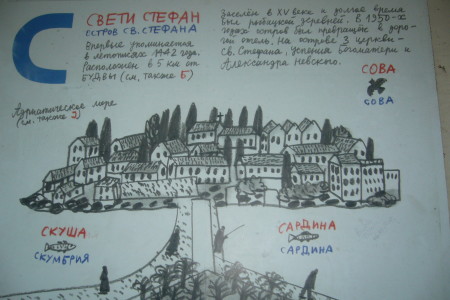 С
СВЕТИ СТЕФАН
ОСТРОВ СВ. СТЕФАНА
Впервые упоминается
в летописях 1442 года.
Расположен в 5 км от
БУДВЫ (см. также Б)
Заселён в XV веке и долгое время
был рыбацкой деревней. В 1950-х
годах остров был превращён в доро-
гой отель. На острове 3 церкви -
Св. Стефана, Успения Богоматери и
Александра Невского.
СОВА
СОВА
Адриатическое море
(см. также Ј)
СКУША
СКУМБРИЯ
САРДИНА
САРДИНА